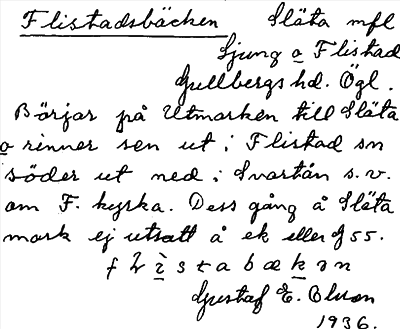 Flistadsbäcken Släta mfl
Ljung o Flistad
Gullbergs hd. Ögl.
Börjar på Utmarken till Släta
o rinner sen ut i Flistad sn
söder ut ned i Svartån s.v.
om F. kyrka. Dess gång å Släta
mark ej utsatt å ek eller J 55.
Gustaf E. Olsson
1936.